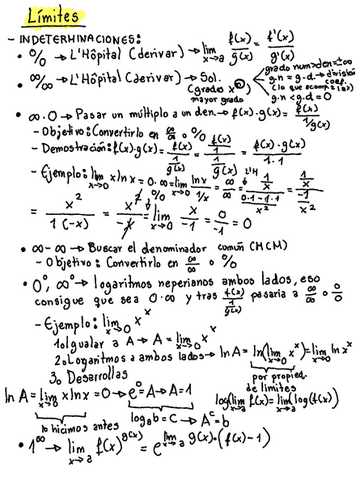 Límites
- INDETERMINACIONES:
• 0/0 → L'Hôpital (derivar) → lim x→a f(x)/g(x) = f'(x)/g'(x)
• ∞/∞ → L'Hôpital (derivar) → Sol. (grado x mayor grado) grado num>den=±∞ g.n = g.d → división coef. (lo que acompaña x) g.n < g.d = 0
• ∞·0 → Pasar un múltiplo a un den → f(x)·g(x) = f(x)/1/g(x)
- Objetivo: Convertirlo en ∞/∞ o 0/0
- Demostración: f(x)·g(x) = f(x)/1/g(x) = f(x)/1/1/g(x) = f(x)·g(x)/1·1
- Ejemplo: lim x→0 x ln x = 0·∞ = lim x→0 ln x/1/x = ∞/∞ L'H = 1/x/0·1-1·1/x² = 1/x/-1/x²
= x²/1(-x) = x²/-x = lim x→0 x/-1 = 0/-1 = 0
• ∞-∞ → Buscar el denominador común (MCM)
- Objetivo: Convertirlo en ∞/∞ o 0/0
• 0⁰, ∞⁰ → logaritmos neperianos ambos lados, eso
consigue que sea 0·∞ y tras f(x)/1/g(x) pasaría a ∞/∞ o 0/0
- Ejemplo: lim x→0 xˣ
1º Igualar a A → A = lim x→0 xˣ
2º Logaritmos a ambos lados → ln A = ln(lim x→0 xˣ) = lim x→0 ln xˣ
3º Desarrollas
por propied. de límites
ln A = lim x→0 x ln x = 0 → e⁰ = A → A = 1
log(lim x→a f(x)) = lim x→a (log(f(x))
lo hicimos antes
logₐb = C → Aᶜ = b
• 1^∞ → lim x→a f(x)^g(x) = e^lim x→a g(x)·(f(x)-1)